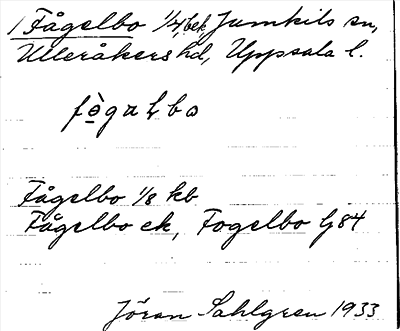 Fågelbo 1/4, bek, Jumkils sn,
Ulleråkers hd, Uppsala l.
Fågelbo 1/8 kb
Fågelbo ek, Fogelbo G84
Jöran Sahlgren 1933